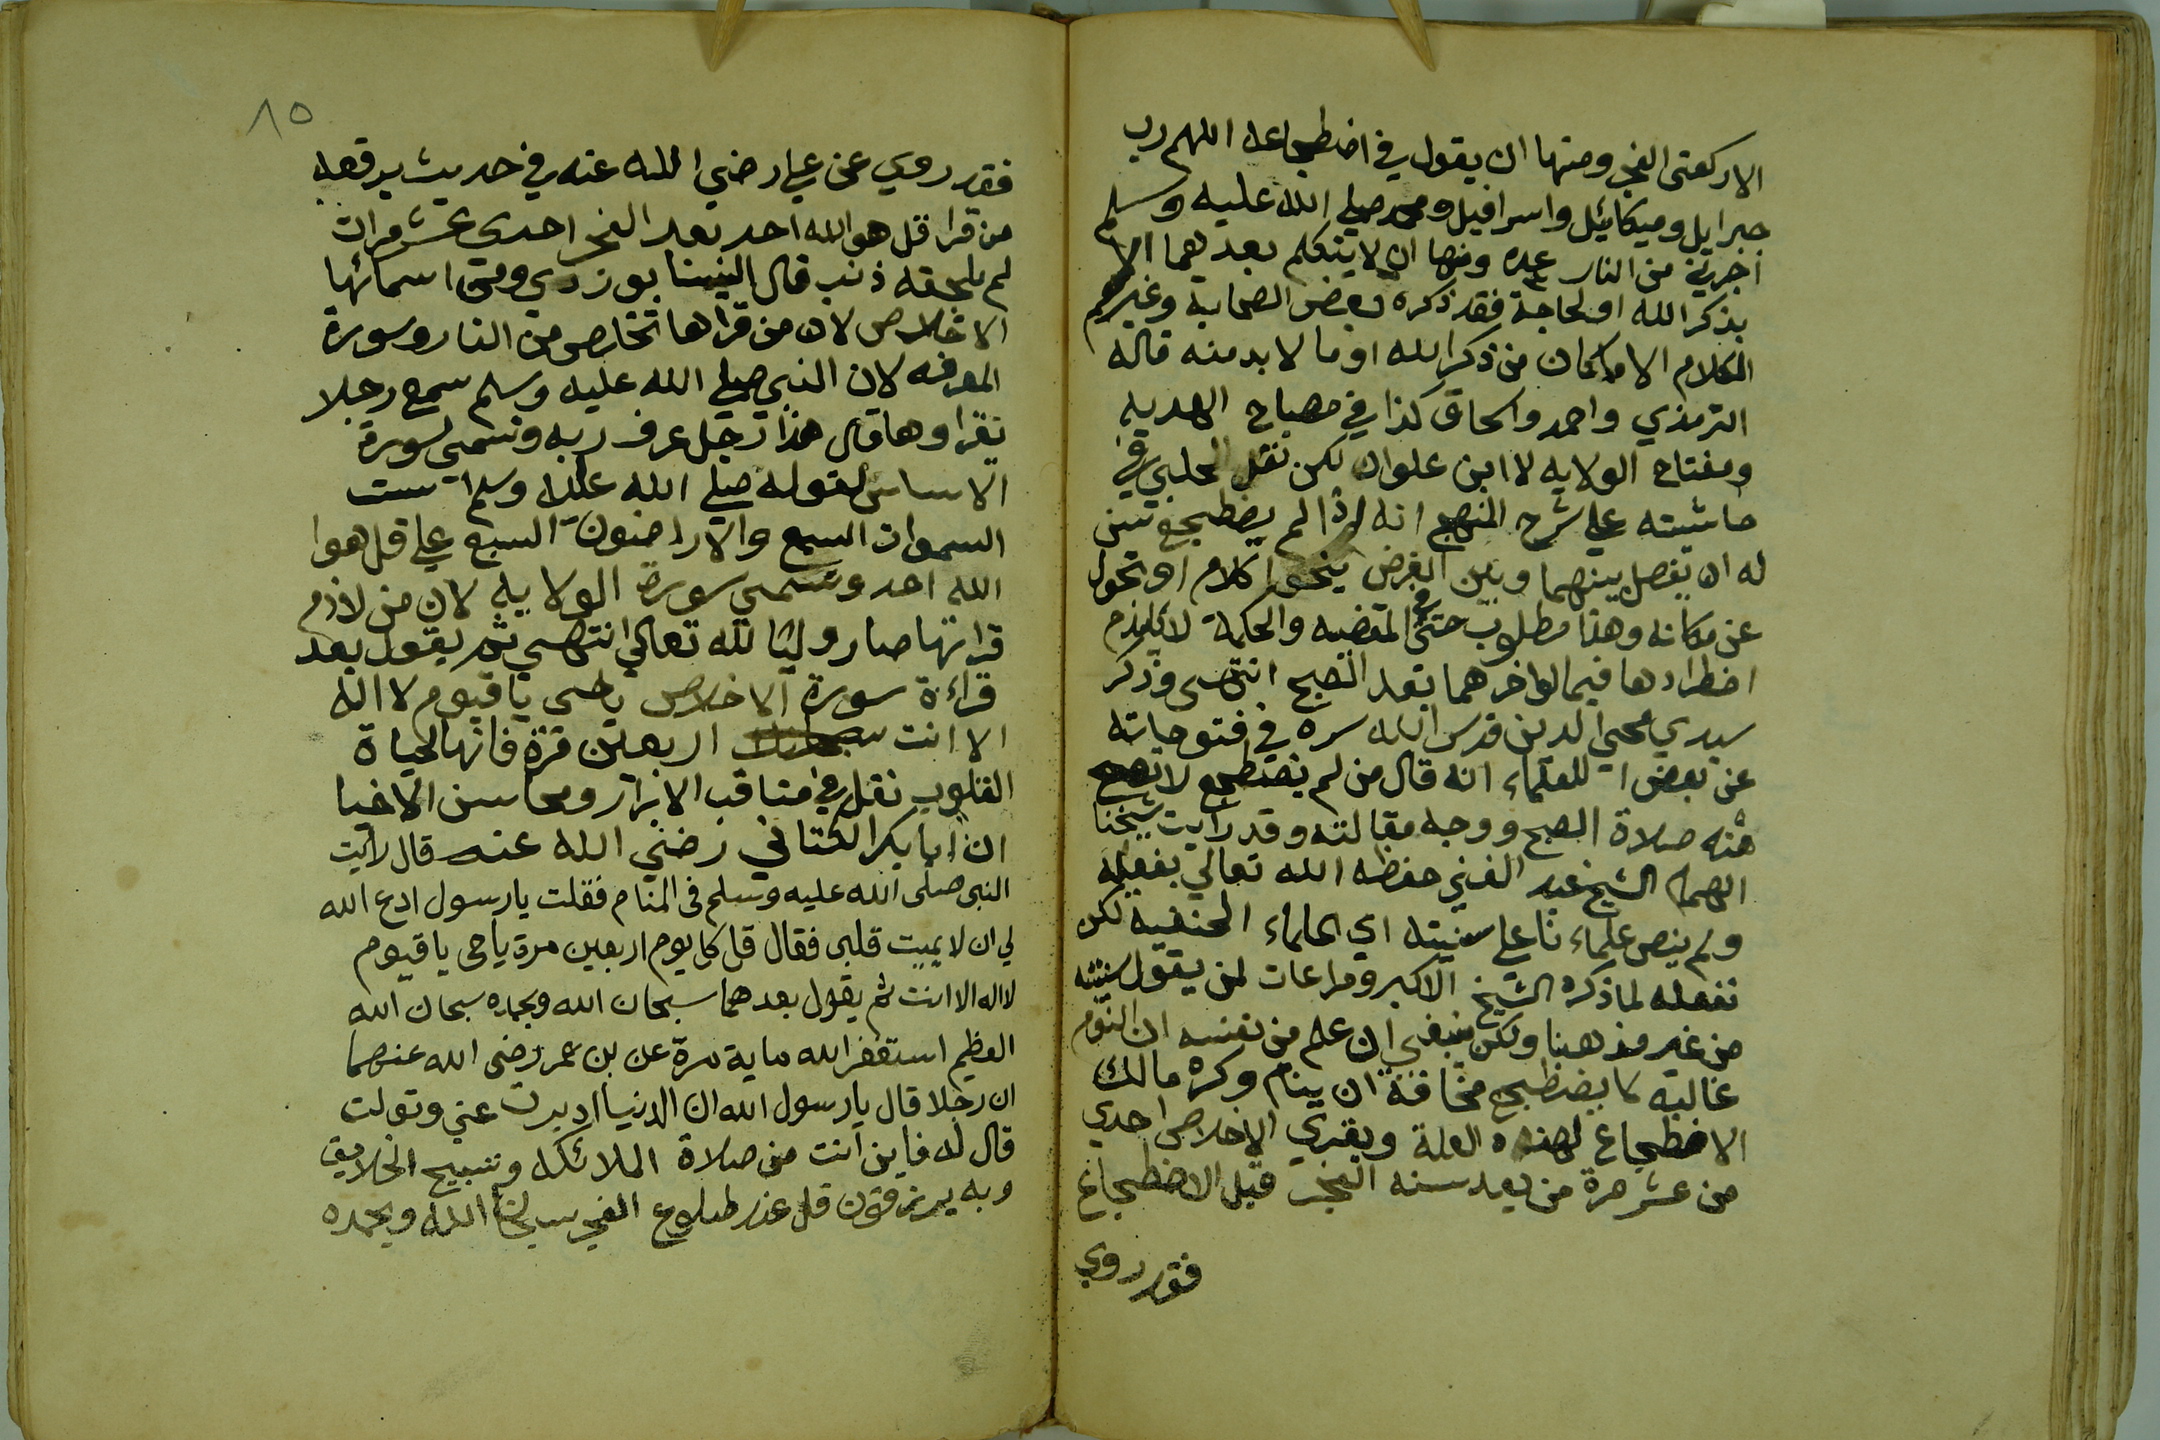 الاركعتى الفجر ومنها ان يقول في اضطجاعه اللهم رب
جبرايل وميكائيل واسرافيل ومحمد صلي الله عليه وسلم
اجرني من النار ومنها ان لا يتكلم بعدهما الا
بذكر الله او لحاجة فقد ذكره بعض الصحابة وغيرهم
الكلام الا ماكان من ذكر الله او ما لا بد منه قاله
الترمذي واحمد واسحاق كذا في مصباح الهديه
ومفتاح الولايه لا ابن علوان لكن نقل الحلبي في
حاشيته علي شرح المنهج انه اذا لم يضطجع تسن
له ان يفصل بينهما وبين الفرض بنحو كلام او تحول
عن مكانه وهذا مطلوب حتي في المقضيه والحكمة لا يلزم
اضطرادها فيما لو اخرهما بعد الصبح انتهى وذكر
سيدي محي الدين قدس الله سره في فتوحاته
عن بعض العلماء انه قال من لم يضطجع لا تصح
منه صلاة الصبح ووجه مقالته وقد رايت شيخنا
الهمام الشيخ عبد الغني حفظه الله تعالي يفعله
ولم ينص علماء نا علي سنيته اي علماء الحنفية لكن
نفعله لما ذكره الشيخ الاكبر ومراعات لمن يقول سنيته
من غير مذهبنا ولكن ينبغي ان علم من نفسه ان النوم
غالبه لا يضطجع مخافة ان ينام وكره مالك
الاضطجاع لهذه العلة ويقري الاخلاص احدي
من عشر مرة من بعد سنه الفجر قبل الاضطجاع
فقد روي
٨٥
فقد روي عن علي رضي الله عنه في حديث يرفعه
من قرا قل هو الله احد بعد الفجر احدى عشر مرات
لم يلحقه ذنب قال ومن اسمائها
الاخلاص لان من قراها تخلص من النار وسورة
المعرفه لان النبي صلي الله عليه وسلم سمع رجلا
يقراوها قال هذا رجل عرف ربه وتسمى سورة
الاساس لقوله صلي الله عليه وسلم اسست
السموات السبع والاراضون السبع علي قل هوا
الله احد وتسمي سورة الولايه لان من لازم
قراتها صار وليا لله تعالي انتهى ثم يقول بعد
قراءة سورة الاخلاص ياحى ياقيوم لا اله
الا انت اربعين مرة فانها لحياة
القلوب نقل في مناقب الابرار ومحاسن الاخيا
ان ابا بكر الكتاني رضي الله عنه قال رايت
النبى صلى الله عليه وسلم فى المنام فقلت يارسول ادع الله
لي ان لا يميت قلبى فقال قل كل يوم اربعين مرة ياحى ياقيوم
لااله الا انت ثم يقول بعدهما سبحان الله وبحمده سبحان الله
العظيم استغفر الله ماية مرة عن بن عمر رضى الله عنهما
ان رجلا قال يارسول الله ان الدنيا ادبرت عني وتولت
قال له فاين انت من صلاة الملائكه وتسبيح الخلايق
وبه يرزقون قل عند طلوع الفجر سبحان الله وبحمده